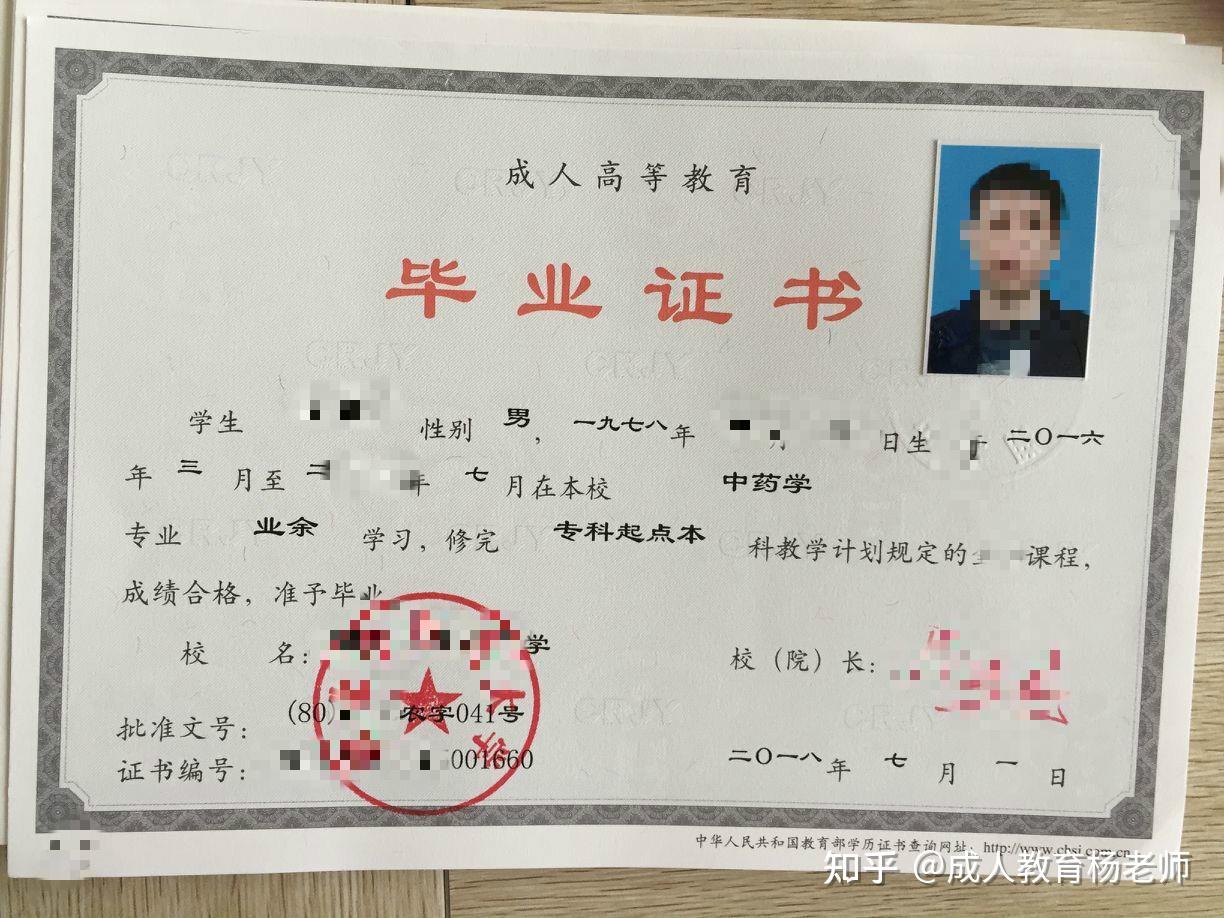 成人高等教育
毕业证书
学生 性别 男, 一九七八年 月 日生 于 二〇一六
年 三 月至 二 年 七 月在本校 中药学
专业 业余 学习, 修完 专科起点本 科教学计划规定的 课程,
成绩合格, 准予毕业
校 名: 学
校（院）长:
批准文号: (80) 农字041号
证书编号: 001660
二〇一八年 七 月 一 日
中华人民共和国教育部学历证书查询网址: http://www.chsi.com.cn
知乎 @成人教育杨老师